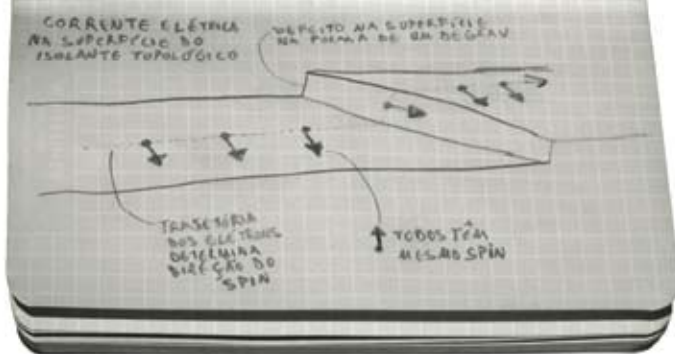 CORRENTE ELÉTRICA
NA SUPERFÍCIE DO
ISOLANTE TOPOLÓGICO
DEFEITO NA SUPERFÍCIE
NA FORMA DE UM DEGRAU
TRAJETÓRIA
DOS ELÉTRONS
DETERMINA
DIREÇÃO DO
SPIN
TODOS TÊM
MESMO SPIN